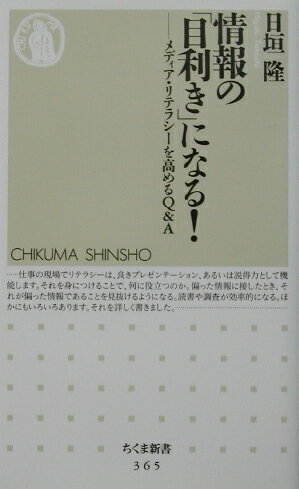 日垣 隆
情報の
「目利き」になる!
──メディア・リテラシーを高めるQ&A
CHIKUMA SHINSHO
……仕事の現場でリテラシーは、良きプレゼンテーション、あるいは説得力として機
能します。それを身につけることで、何に役立つのか。偏った情報に接したとき、そ
れが偏った情報であることを見抜けるようになる。読書や調査が効率的になる。ほ
かにもいろいろあります。それを詳しく書きました。……
ちくま新書
365